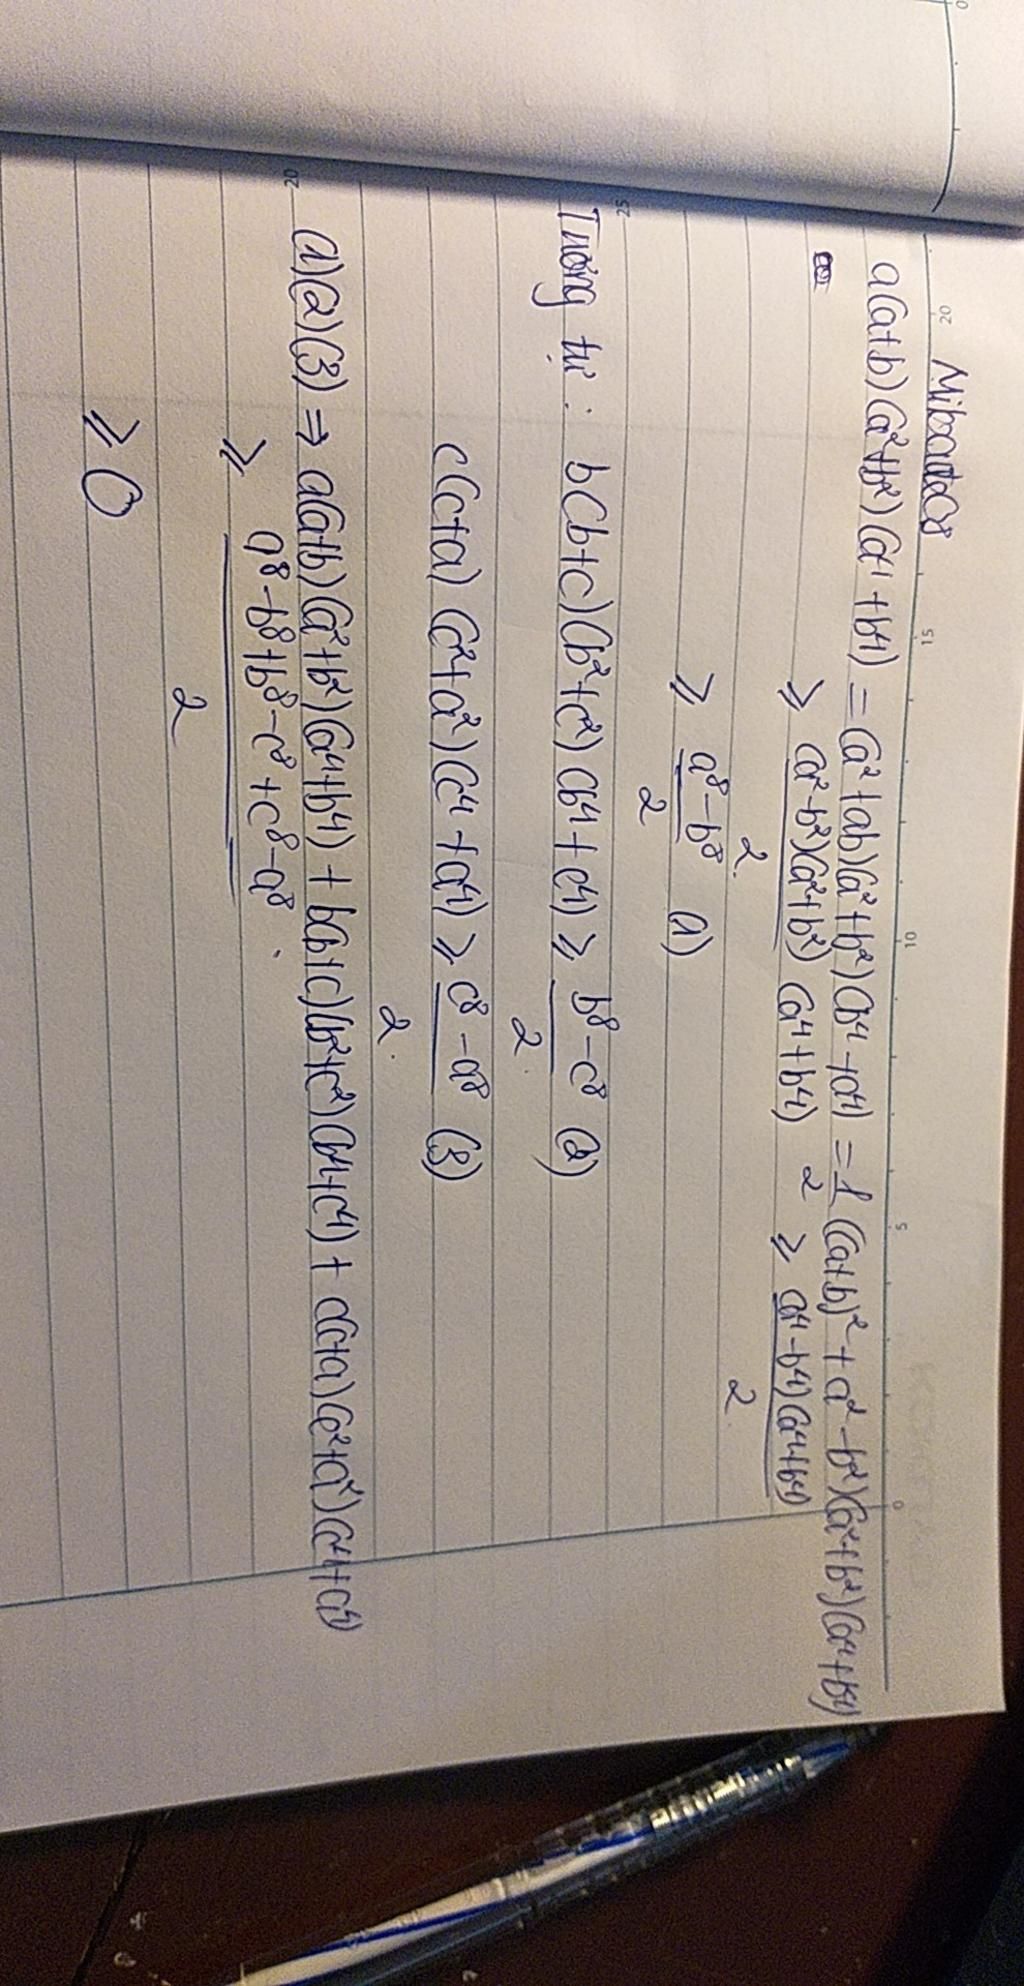 a(a+b)(a²+b²)(a⁴+b⁴) = (a²+ab)(a²+b²)(b⁴+a⁴) = 1/2 ((a+b)²+a²-b²)(a²+b²)(a⁴+b⁴)
≥ (a²-b²)(a²+b²)(a⁴+b⁴)/2 ≥ (a⁴-b⁴)(a⁴+b⁴)/2
≥ (a⁸-b⁸)/2 (1)
Tương tự: b(b+c)(b²+c²)(b⁴+c⁴) ≥ (b⁸-c⁸)/2 (2)
c(c+a)(c²+a²)(c⁴+a⁴) ≥ (c⁸-a⁸)/2 (3)
(1)(2)(3) ⇒ a(a+b)(a²+b²)(a⁴+b⁴) + b(b+c)(b²+c²)(b⁴+c⁴) + c(c+a)(c²+a²)(c⁴+a⁴)
≥ (a⁸-b⁸+b⁸-c⁸+c⁸-a⁸)/2
≥ 0
20
15
10
5
0
25
20